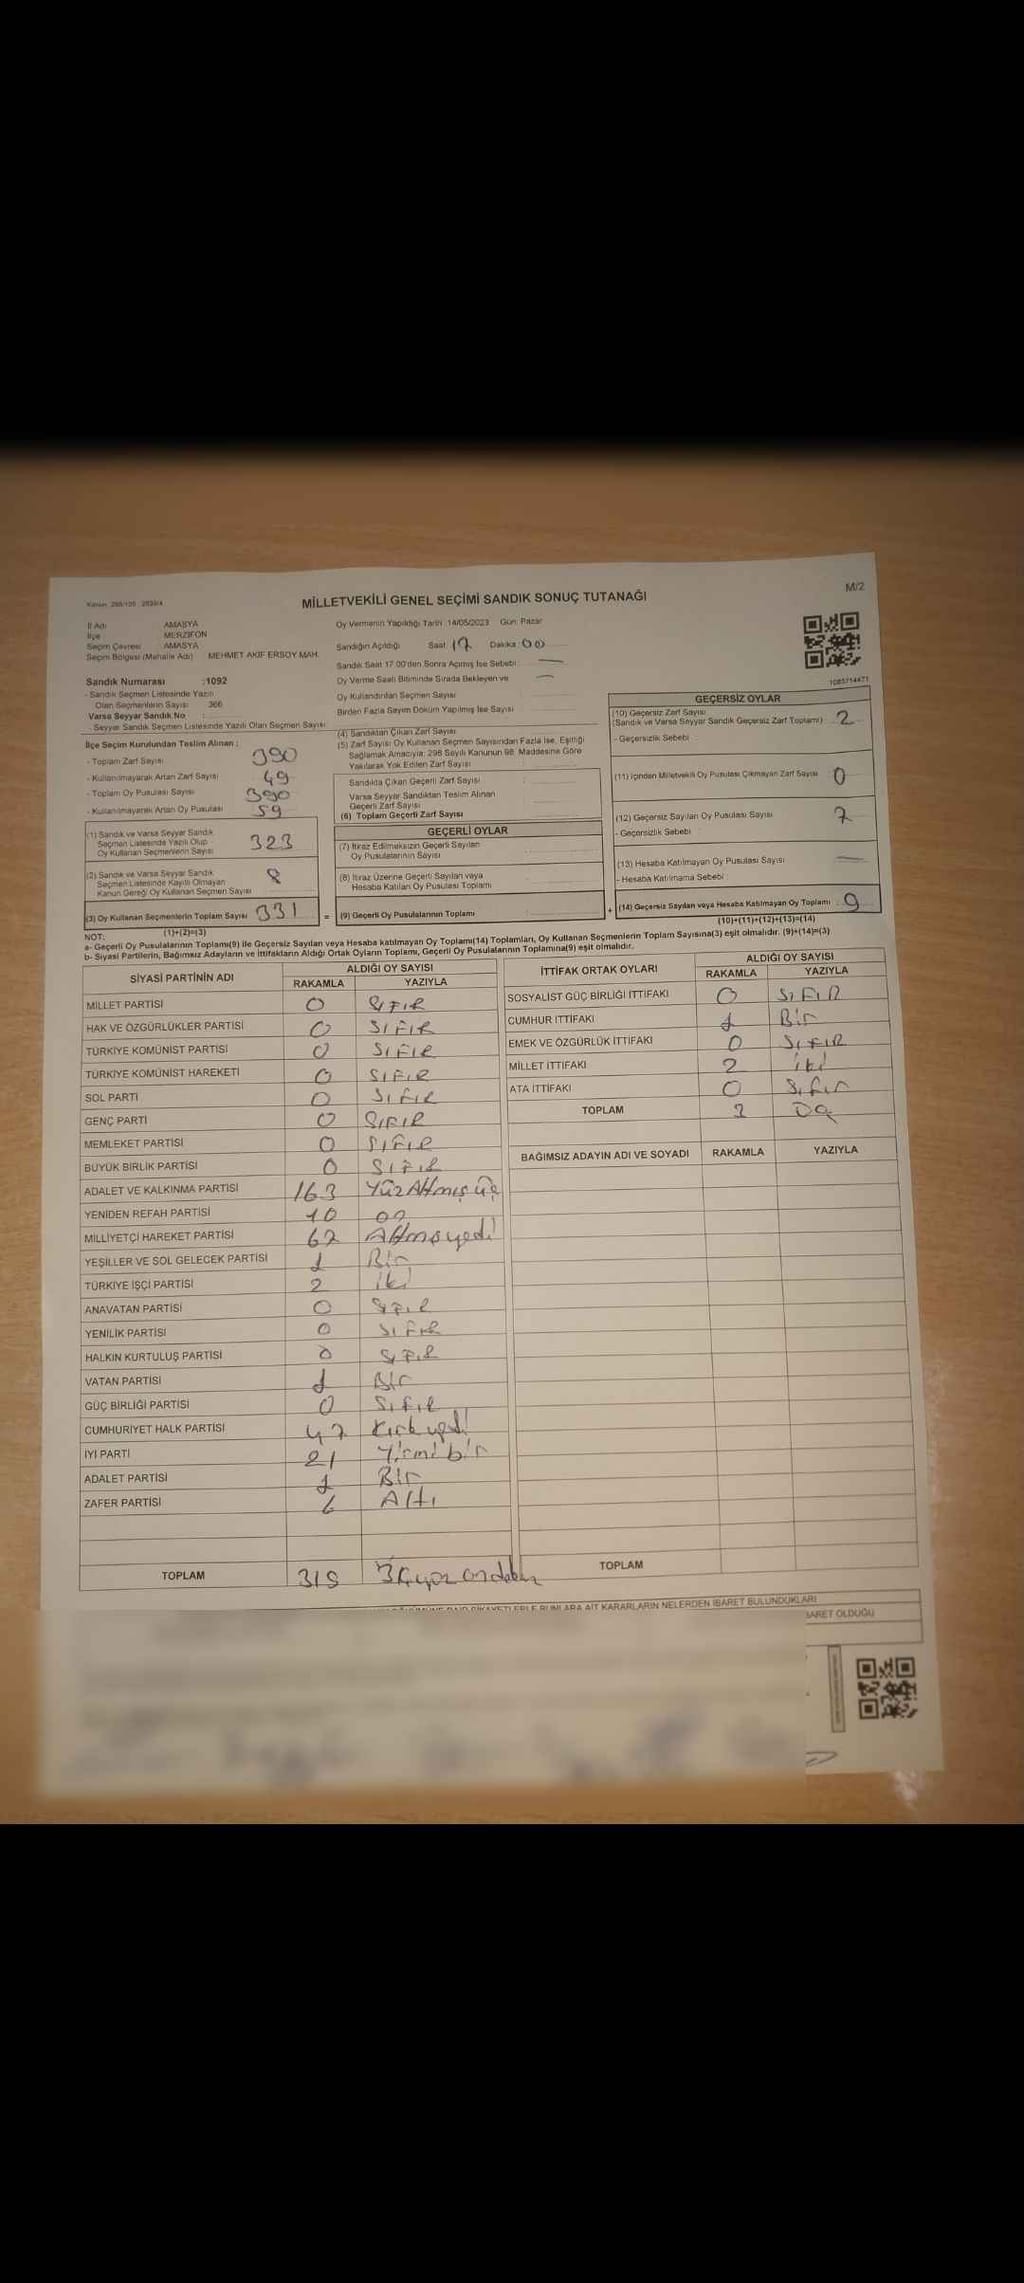 M/2
MİLLETVEKİLİ GENEL SEÇİMİ SANDIK SONUÇ TUTANAĞI
İl Adı AMASYA
İlçe MERZİFON
Seçim Çevresi AMASYA
Seçim Bölgesi (Mahalle Adı) MEHMET AKİF ERSOY MAH.
Sandık Numarası :1092
- Sandık Seçmen Listesinde Yazılı
Olan Seçmenlerin Sayısı 366
Varsa Seyyar Sandık No :
- Seyyar Sandık Seçmen Listesinde Yazılı Olan Seçmen Sayısı
Oy Vermenin Yapıldığı Tarih :14/05/2023 Gün: Pazar
Sandığın Açıldığı Saat: 17 Dakika: 00
Sandık Saat 17.00'den Sonra Açılmış İse Sebebi : —
Oy Verme Saati Bitiminde Sırada Bekleyen ve —
Oy Kullandırılan Seçmen Sayısı
Birden Fazla Sayım Döküm Yapılmış İse Sayısı
1085714471
İlçe Seçim Kurulundan Teslim Alınan :
- Toplam Zarf Sayısı 390
- Kullanılmayarak Artan Zarf Sayısı 49
- Toplam Oy Pusulası Sayısı 390
- Kullanılmayarak Artan Oy Pusulası 59
(1) Sandık ve Varsa Seyyar Sandık
Seçmen Listesinde Yazılı Olup
Oy Kullanan Seçmenlerin Sayısı 323
(2) Sandık ve Varsa Seyyar Sandık
Seçmen Listesinde Kayıtlı Olmayan
Kanun Gereği Oy Kullanan Seçmen Sayısı 8
(3) Oy Kullanan Seçmenlerin Toplam Sayısı 331
(1)+(2)=(3)
(4) Sandıktan Çıkan Zarf Sayısı
(5) Zarf Sayısı Oy Kullanan Seçmen Sayısından Fazla İse, Eşitliği
Sağlamak Amacıyla; 298 Sayılı Kanunun 98. Maddesine Göre
Yakılarak Yok Edilen Zarf Sayısı
Sandıkta Çıkan Geçerli Zarf Sayısı
Varsa Seyyar Sandıktan Teslim Alınan
Geçerli Zarf Sayısı
(6) Toplam Geçerli Zarf Sayısı
GEÇERLİ OYLAR
(7) İtiraz Edilmeksizin Geçerli Sayılan
Oy Pusulalarının Sayısı
(8) İtiraz Üzerine Geçerli Sayılan veya
Hesaba Katılan Oy Pusulası Toplamı
= (9) Geçerli Oy Pusulalarının Toplamı +
GEÇERSİZ OYLAR
(10) Geçersiz Zarf Sayısı
(Sandık ve Varsa Seyyar Sandık Geçersiz Zarf Toplamı) 2
- Geçersizlik Sebebi :
(11) İçinden Milletvekili Oy Pusulası Çıkmayan Zarf Sayısı 0
(12) Geçersiz Sayılan Oy Pusulası Sayısı 7
- Geçersizlik Sebebi :
(13) Hesaba Katılmayan Oy Pusulası Sayısı —
- Hesaba Katılmama Sebebi :
(14) Geçersiz Sayılan veya Hesaba Katılmayan Oy Toplamı 9
(10)+(11)+(12)+(13)=(14)
NOT:
a- Geçerli Oy Pusulalarının Toplamı(9) ile Geçersiz Sayılan veya Hesaba katılmayan Oy Toplamı(14) Toplamları, Oy Kullanan Seçmenlerin Toplam Sayısına(3) eşit olmalıdır. (9)+(14)=(3)
b- Siyasi Partilerin, Bağımsız Adayların ve İttifakların Aldığı Ortak Oyların Toplamı, Geçerli Oy Pusulalarının Toplamına(9) eşit olmalıdır.
SİYASİ PARTİNİN ADI ALDIĞI OY SAYISI
RAKAMLA YAZIYLA
MİLLET PARTİSİ 0 SIFIR
HAK VE ÖZGÜRLÜKLER PARTİSİ 0 SIFIR
TÜRKİYE KOMÜNİST PARTİSİ 0 SIFIR
TÜRKİYE KOMÜNİST HAREKETİ 0 SIFIR
SOL PARTİ 0 SIFIR
GENÇ PARTİ 0 SIFIR
MEMLEKET PARTİSİ 0 SIFIR
BÜYÜK BİRLİK PARTİSİ 0 SIFIR
ADALET VE KALKINMA PARTİSİ 163 YüzAtmış üç
YENİDEN REFAH PARTİSİ 10 on
MİLLİYETÇİ HAREKET PARTİSİ 67
YEŞİLLER VE SOL GELECEK PARTİSİ 1 Bir
TÜRKİYE İŞÇİ PARTİSİ 2 iki
ANAVATAN PARTİSİ 0 SIFIR
YENİLİK PARTİSİ 0 SIFIR
HALKIN KURTULUŞ PARTİSİ 0 SIFIR
VATAN PARTİSİ 1 Bir
GÜÇ BİRLİĞİ PARTİSİ 0 SIFIR
CUMHURİYET HALK PARTİSİ 47 Kırkyedi
İYİ PARTİ 21 Yirmibir
ADALET PARTİSİ 1 Bir
ZAFER PARTİSİ 6 Altı
TOPLAM 319
İTTİFAK ORTAK OYLARI ALDIĞI OY SAYISI
RAKAMLA YAZIYLA
SOSYALİST GÜÇ BİRLİĞİ İTTİFAKI 0 SIFIR
CUMHUR İTTİFAKI 1 Bir
EMEK VE ÖZGÜRLÜK İTTİFAKI 0 SIFIR
MİLLET İTTİFAKI 2 iki
ATA İTTİFAKI 0 Sıfır
TOPLAM 3
BAĞIMSIZ ADAYIN ADI VE SOYADI RAKAMLA YAZIYLA
TOPLAM
KARARLARIN NELERDEN İBARET BULUNDUKLARI
OLDUĞU